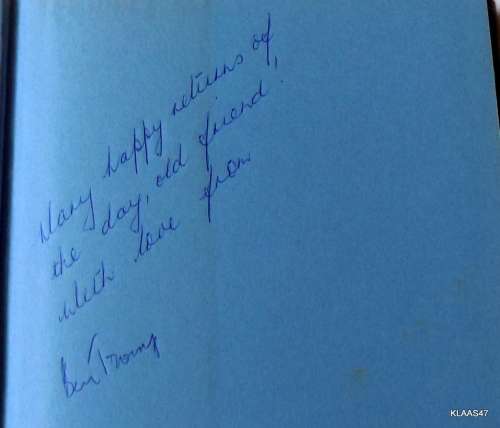 Many happy returns of
the day, old friend,
with love from
Ben Tromp
KLAAS47